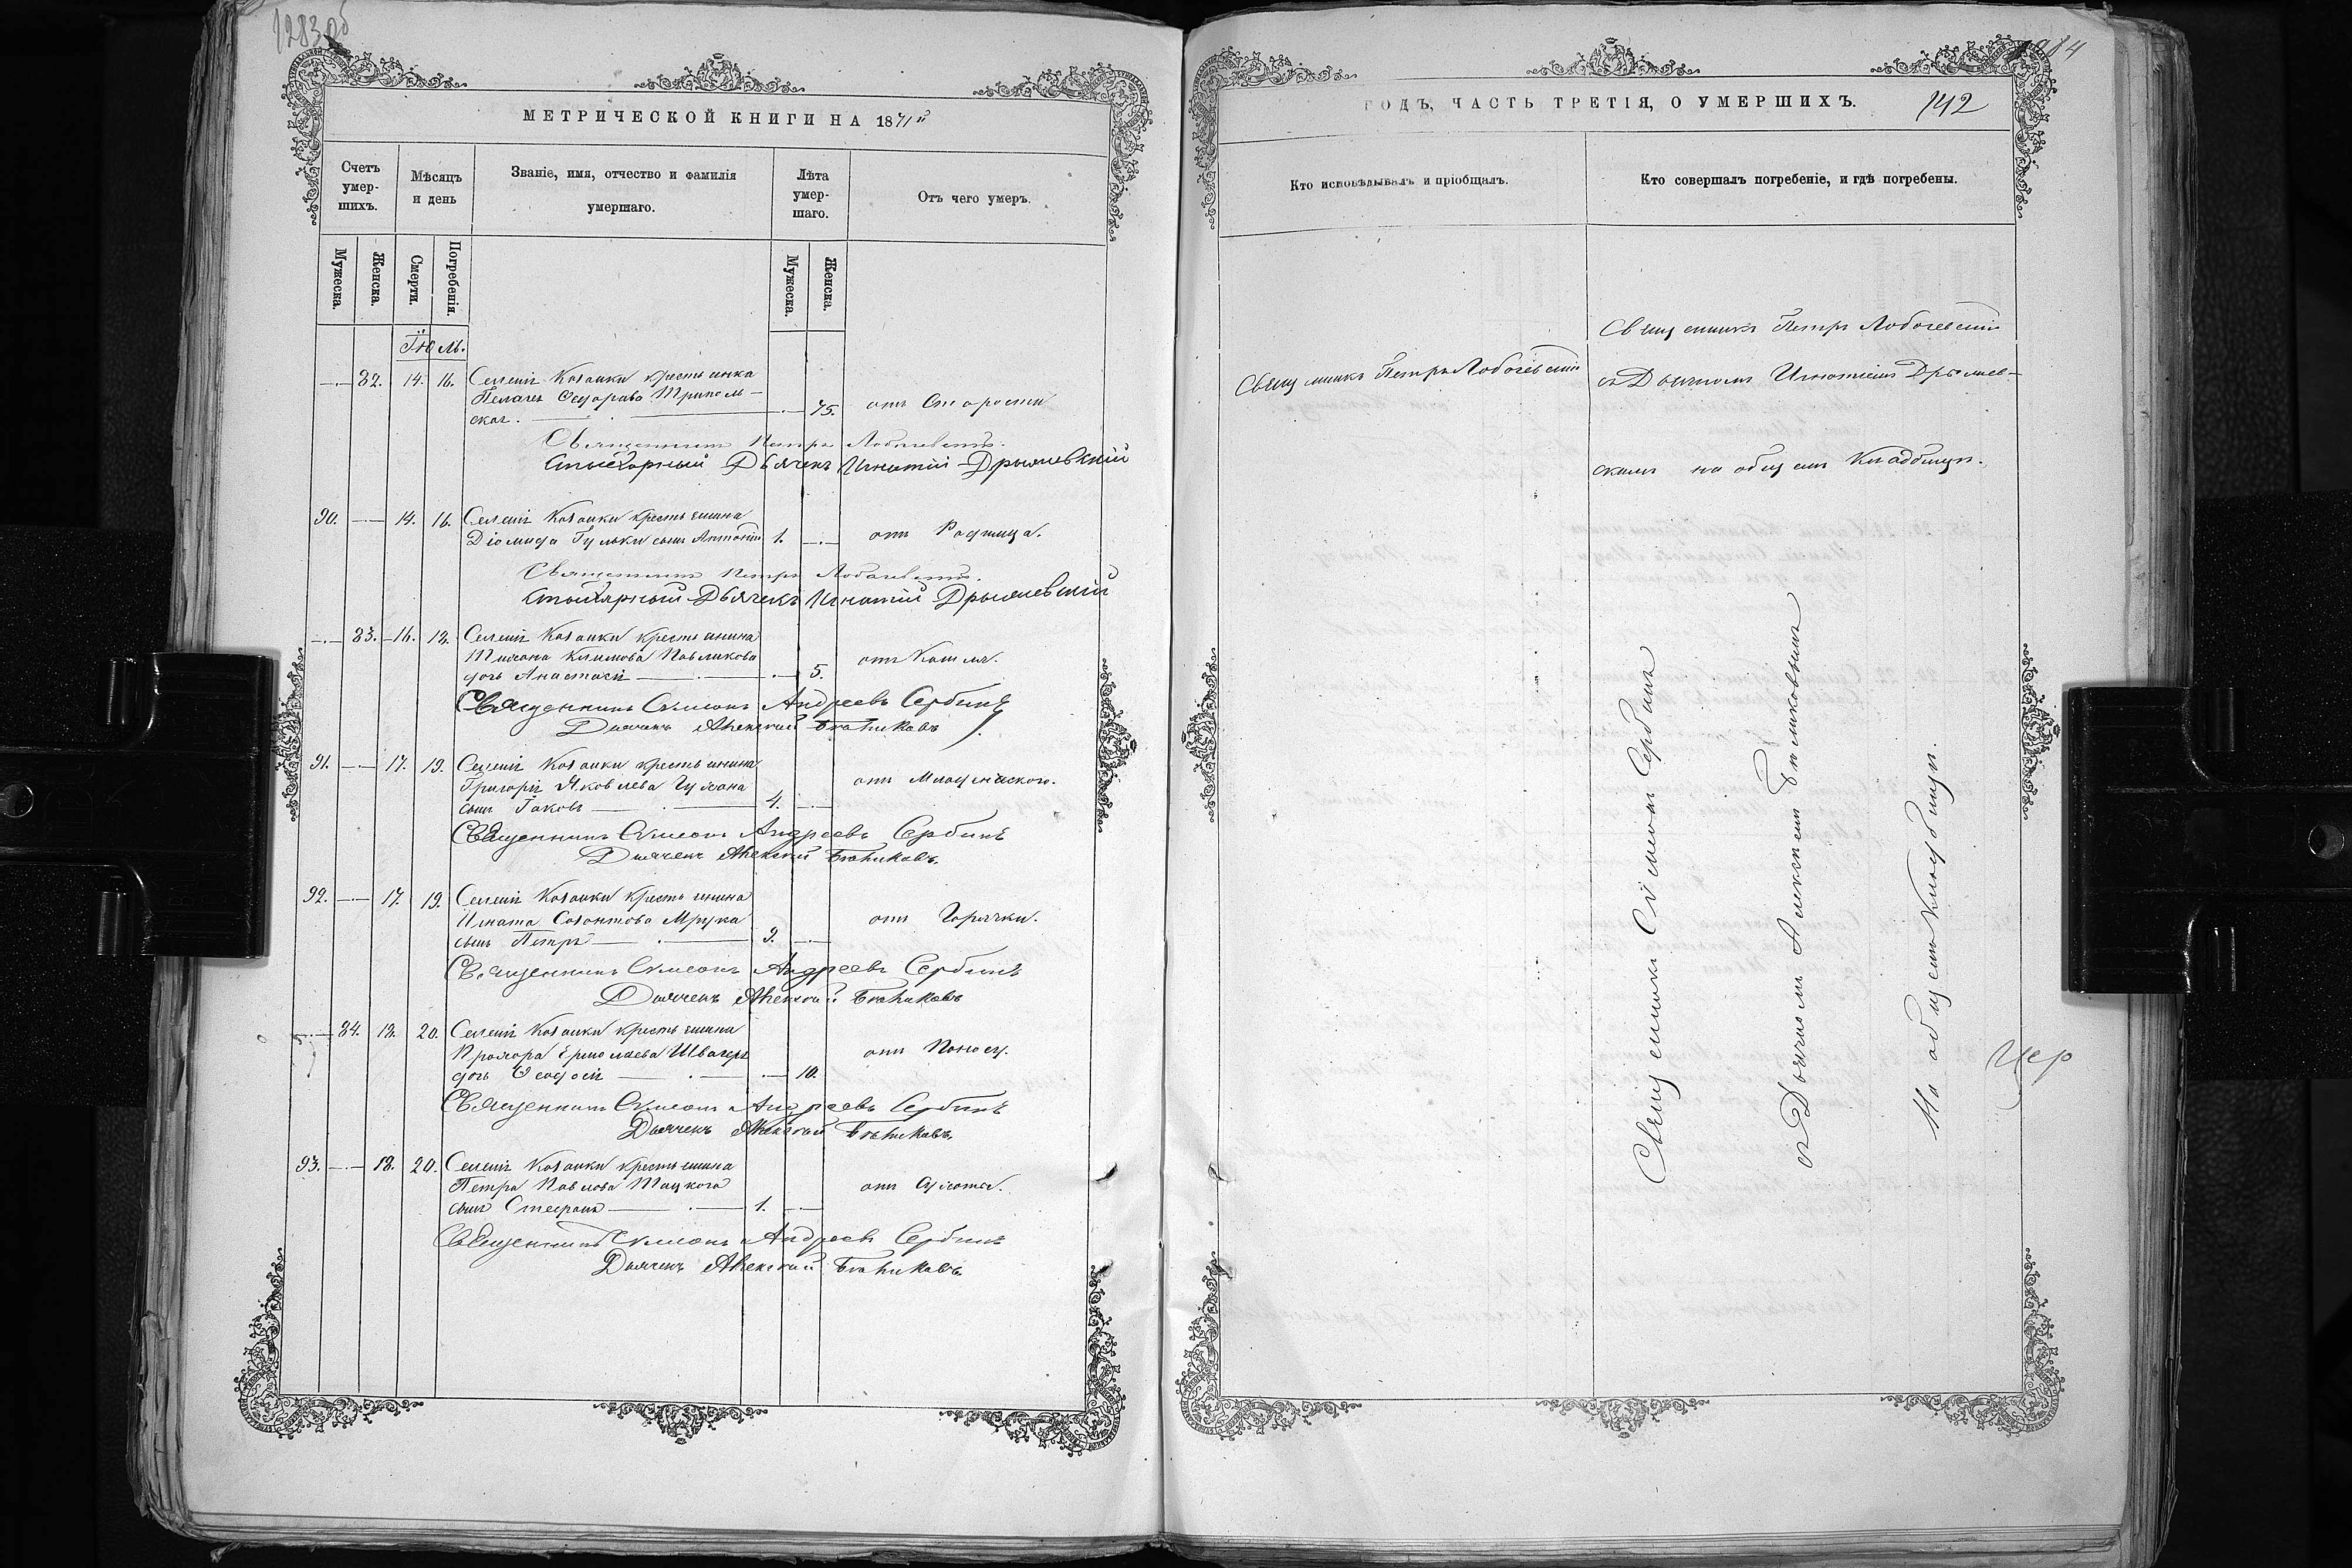 1283 об
МЕТРИЧЕСКОЙ КНИГИ НА 1871й
Счетъ умер-шихъ.
Мѣсяцъ и день
Званіе, имя, отчество и фамилія умершаго.
Лѣта умер-шаго.
Отъ чего умеръ.
Мужеска.
Женска.
Смерти.
Погребенія.
Мужеска.
Женска.
Іюль.
82. 14. 16. Селенія Козанки крестьянка
Пелагея Ѳедорова Триполь-
ская. 75. отъ Старости
Священникъ Петръ Лобачевскій.
Дьячекъ Игнатій Дрыжевскій
90. 14. 16. Селенія Козанки крестьянина
Діомида Гульки сынъ Антоній 1. отъ Родимца.
Священникъ Петръ Лобачевскій.
Дьячекъ Игнатій Дрыжевскій
83. 16. 18. Селенія Козанки крестьянина
Климова Павликова
дочь Анастасія 5. отъ Кашля.
Священникъ Симеонъ Андреевъ Сербинъ
Дьячекъ Алексѣй Бѣликовъ
91. 17. 19. Селенія Козанки крестьянина
Григорія Яковлева
сынъ Іаковъ 4. отъ Младенческого.
Священникъ Симеонъ Андреевъ Сербинъ
Дьячекъ Алексѣй Бѣликовъ.
92. 17. 19. Селенія Козанки крестьянина
Игната Созонтова
сынъ Петръ 9. отъ Горячки.
Священникъ Симеонъ Андреевъ Сербинъ
Дьячекъ Алексѣй Бѣликовъ
84. 18. 20. Селенія Козанки крестьянина
Прохора Ермолаева
дочь Ѳеодосія 10. отъ Поносу.
Священникъ Симеонъ Андреевъ Сербинъ
Дьячекъ Алексѣй Бѣликовъ.
93. 18. 20. Селенія Козанки крестьянина
Петра Павлова Тацкого
сынъ Стефанъ 1. отъ Сухоты.
Священникъ Симеонъ Андреевъ Сербинъ
Дьячекъ Алексѣй Бѣликовъ.
ГОДЪ, ЧАСТЬ ТРЕТІЯ, О УМЕРШИХЪ. 142
Кто исповѣдывалъ и пріобщалъ.
Кто совершалъ погребеніе, и гдѣ погребены.
Священникъ Петръ Лобачевскій
Священникъ Петръ Лобачевскій
съ Дьячкомъ Игнатіемъ Дрыжев-
скимъ на общемъ Кладбищѣ.
Священникъ Симеонъ Сербинъ
съ Дьячкомъ Алексѣемъ Бѣликовымъ
На общемъ Кладбищѣ.